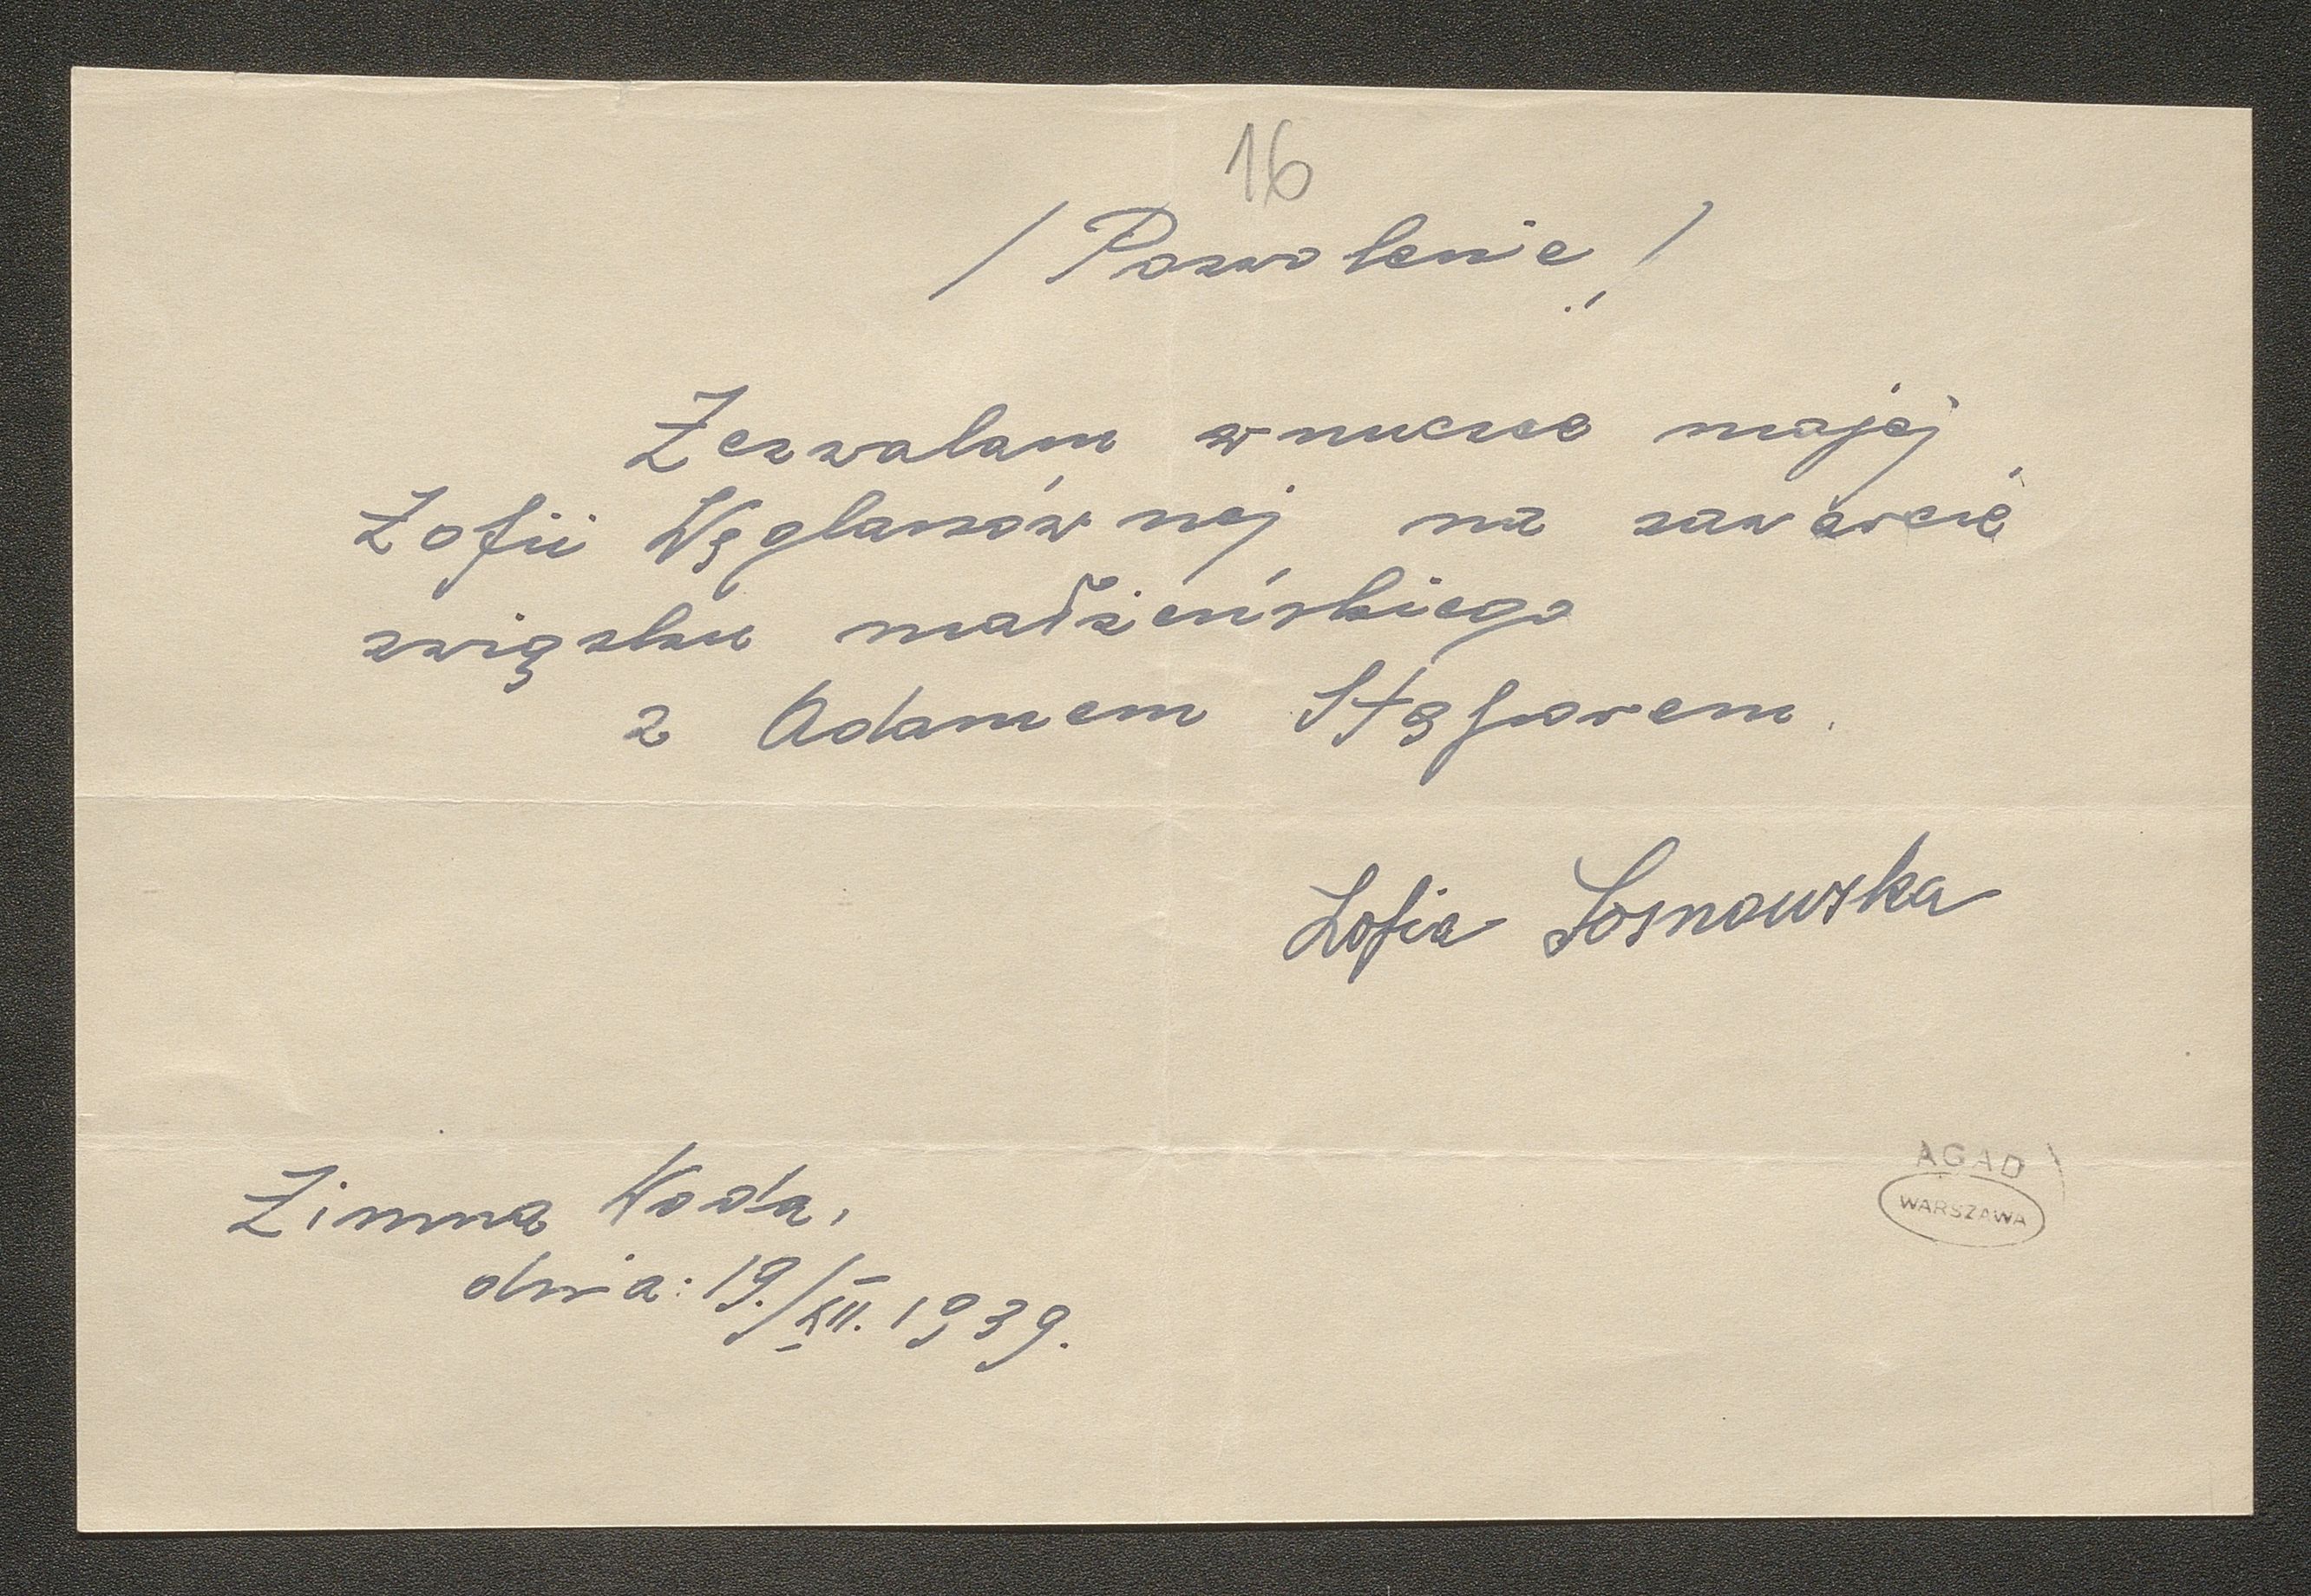 16
/ Pozwolenie! /
Zezwalam wnuczce mojej
Zofii Węglarzównej na zawarcie
związku małżeńskiego
z Adamem
Zofia Sosnowska
Zimna Woda,
dnia: 19./XII. 1939.
AGAD
WARSZAWA